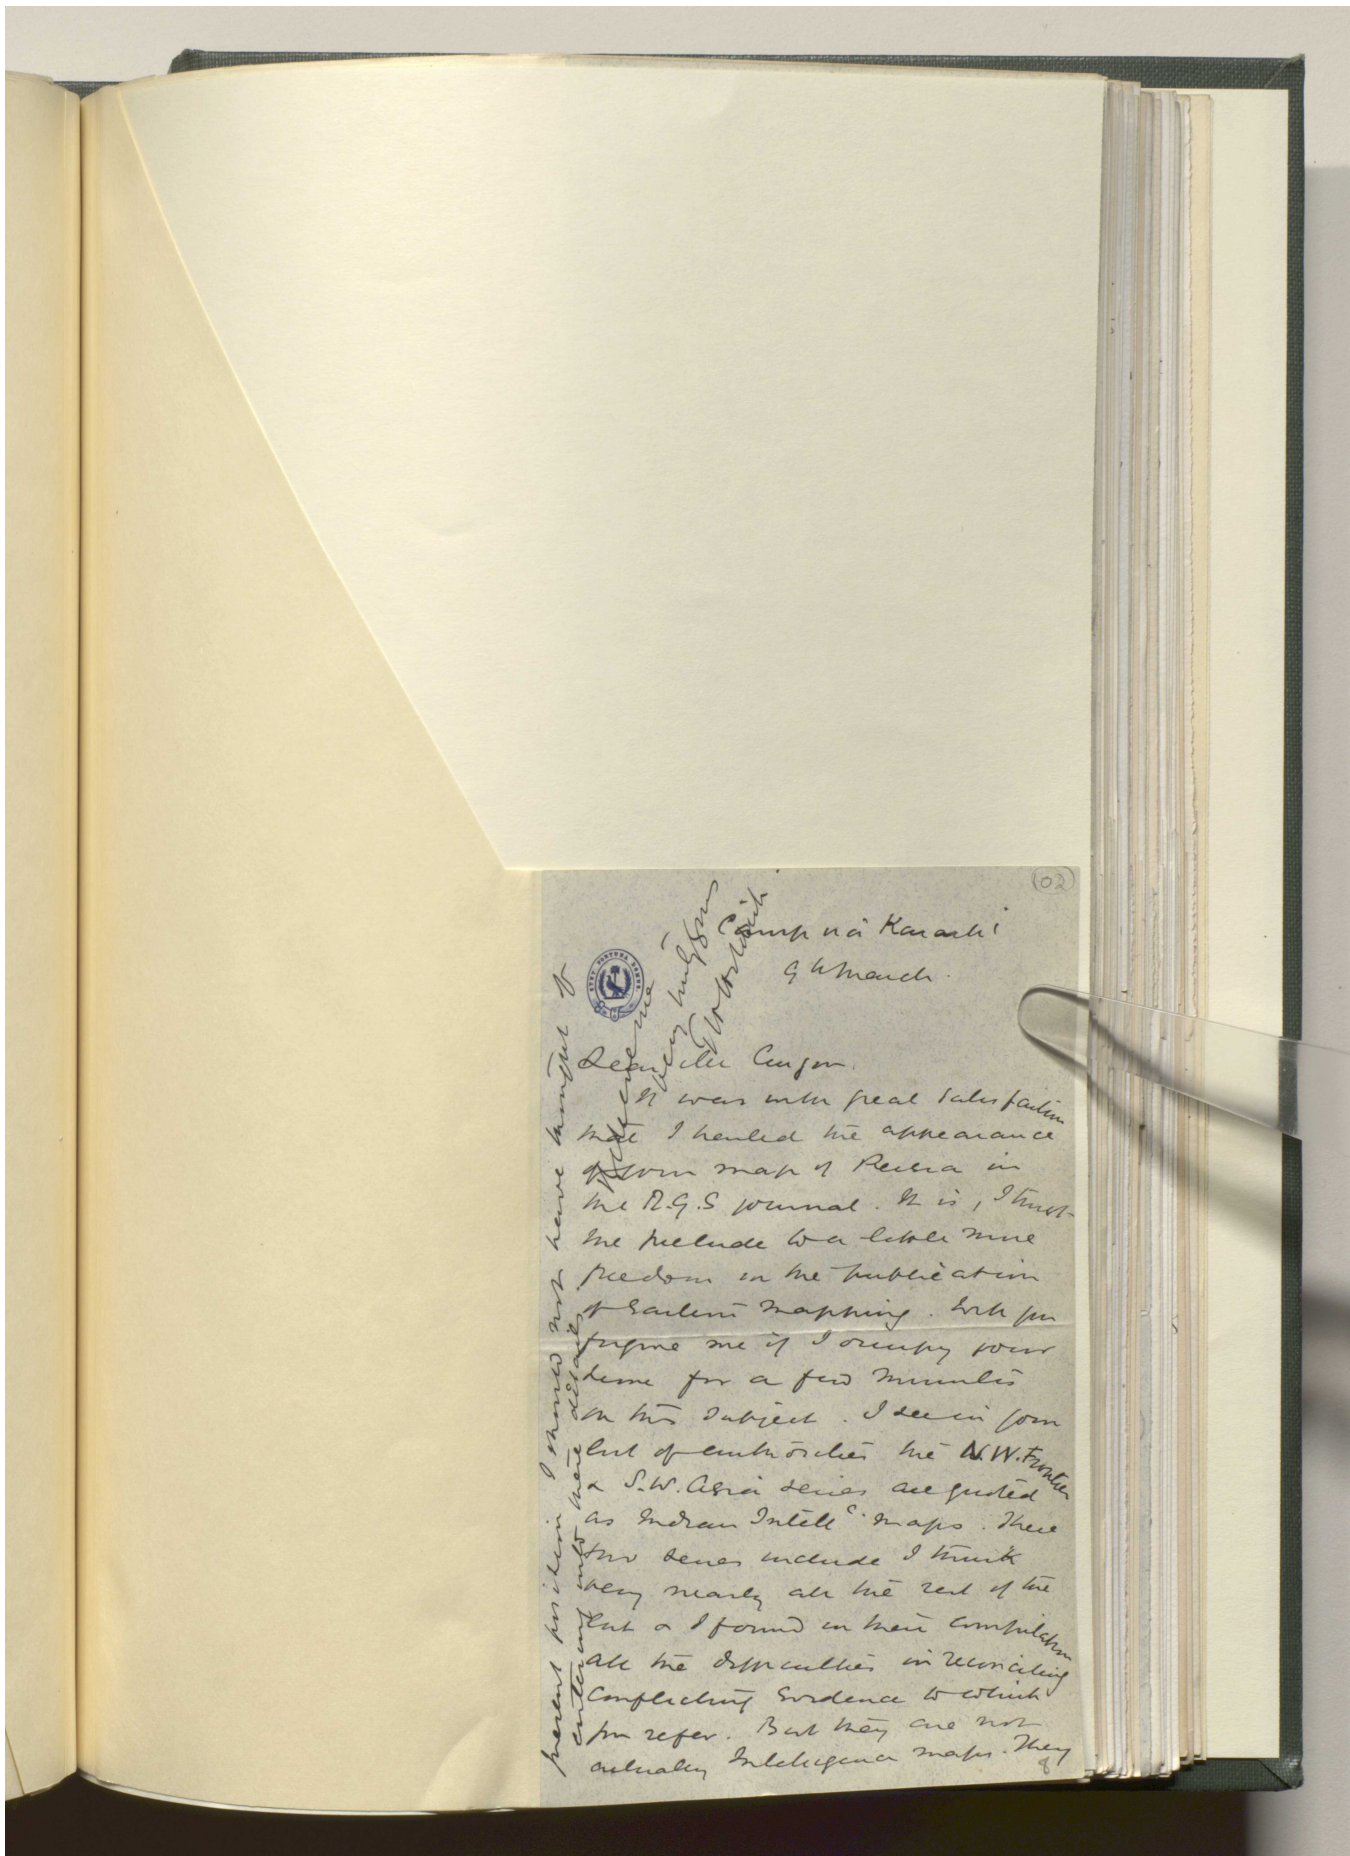 102
Camp via Karachi
9th March.
Dear Mr Curzon.
It was with great satisfaction
that I hailed the appearance
of your map of Persia in
the R.G.S journal. It is, I trust
the prelude to a little more
freedom in the publication
of Eastern mapping. Will you
forgive me if I occupy your
time for a few minutes
on this subject. I see in your
list of authorities the N.W. Frontier
& S.W. Asia series are quoted
as Indian Intellce. maps. These
two series include I think
very nearly all the rest of the
list & I found in their compilation
all the difficulties in reconciling
conflicting evidence to which
you refer. But they are not
actually Intelligence maps. They
present position I should not have thought of
entering into mere details.
Believe me
Very truly yours
T H Holdich